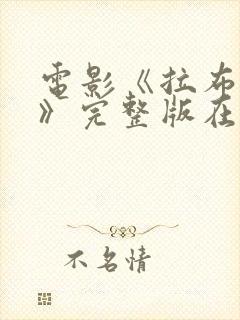 電影《拉布
》完整版在
不名情